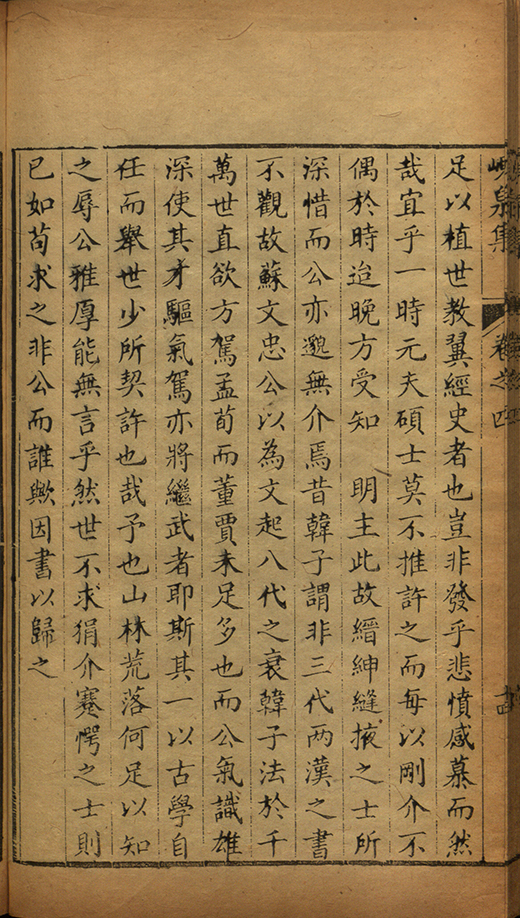 峴泉集 卷之四
足以植世教翼經史者也豈非發乎悲憤感慕而然
哉宜乎一時元夫碩士莫不推許之而每以剛介不
偶於時迨晚方受知 明主此故縉紳縫掖之士所
深惜而公亦邈無介焉昔韓子謂非三代两漢之書
不觀故蘇文忠公以為文起八代之衰韓子法於千
萬世直欲方駕孟荀而董賈未足多也而公氣識雄
深使其才驅氣駕亦將繼武者耶斯其一以古學自
任而舉世少所契許也哉予也山林荒落何足以知
之辱公雅厚能無言乎然世不求狷介蹇愕之士則
已如苟求之非公而誰歟因書以歸之